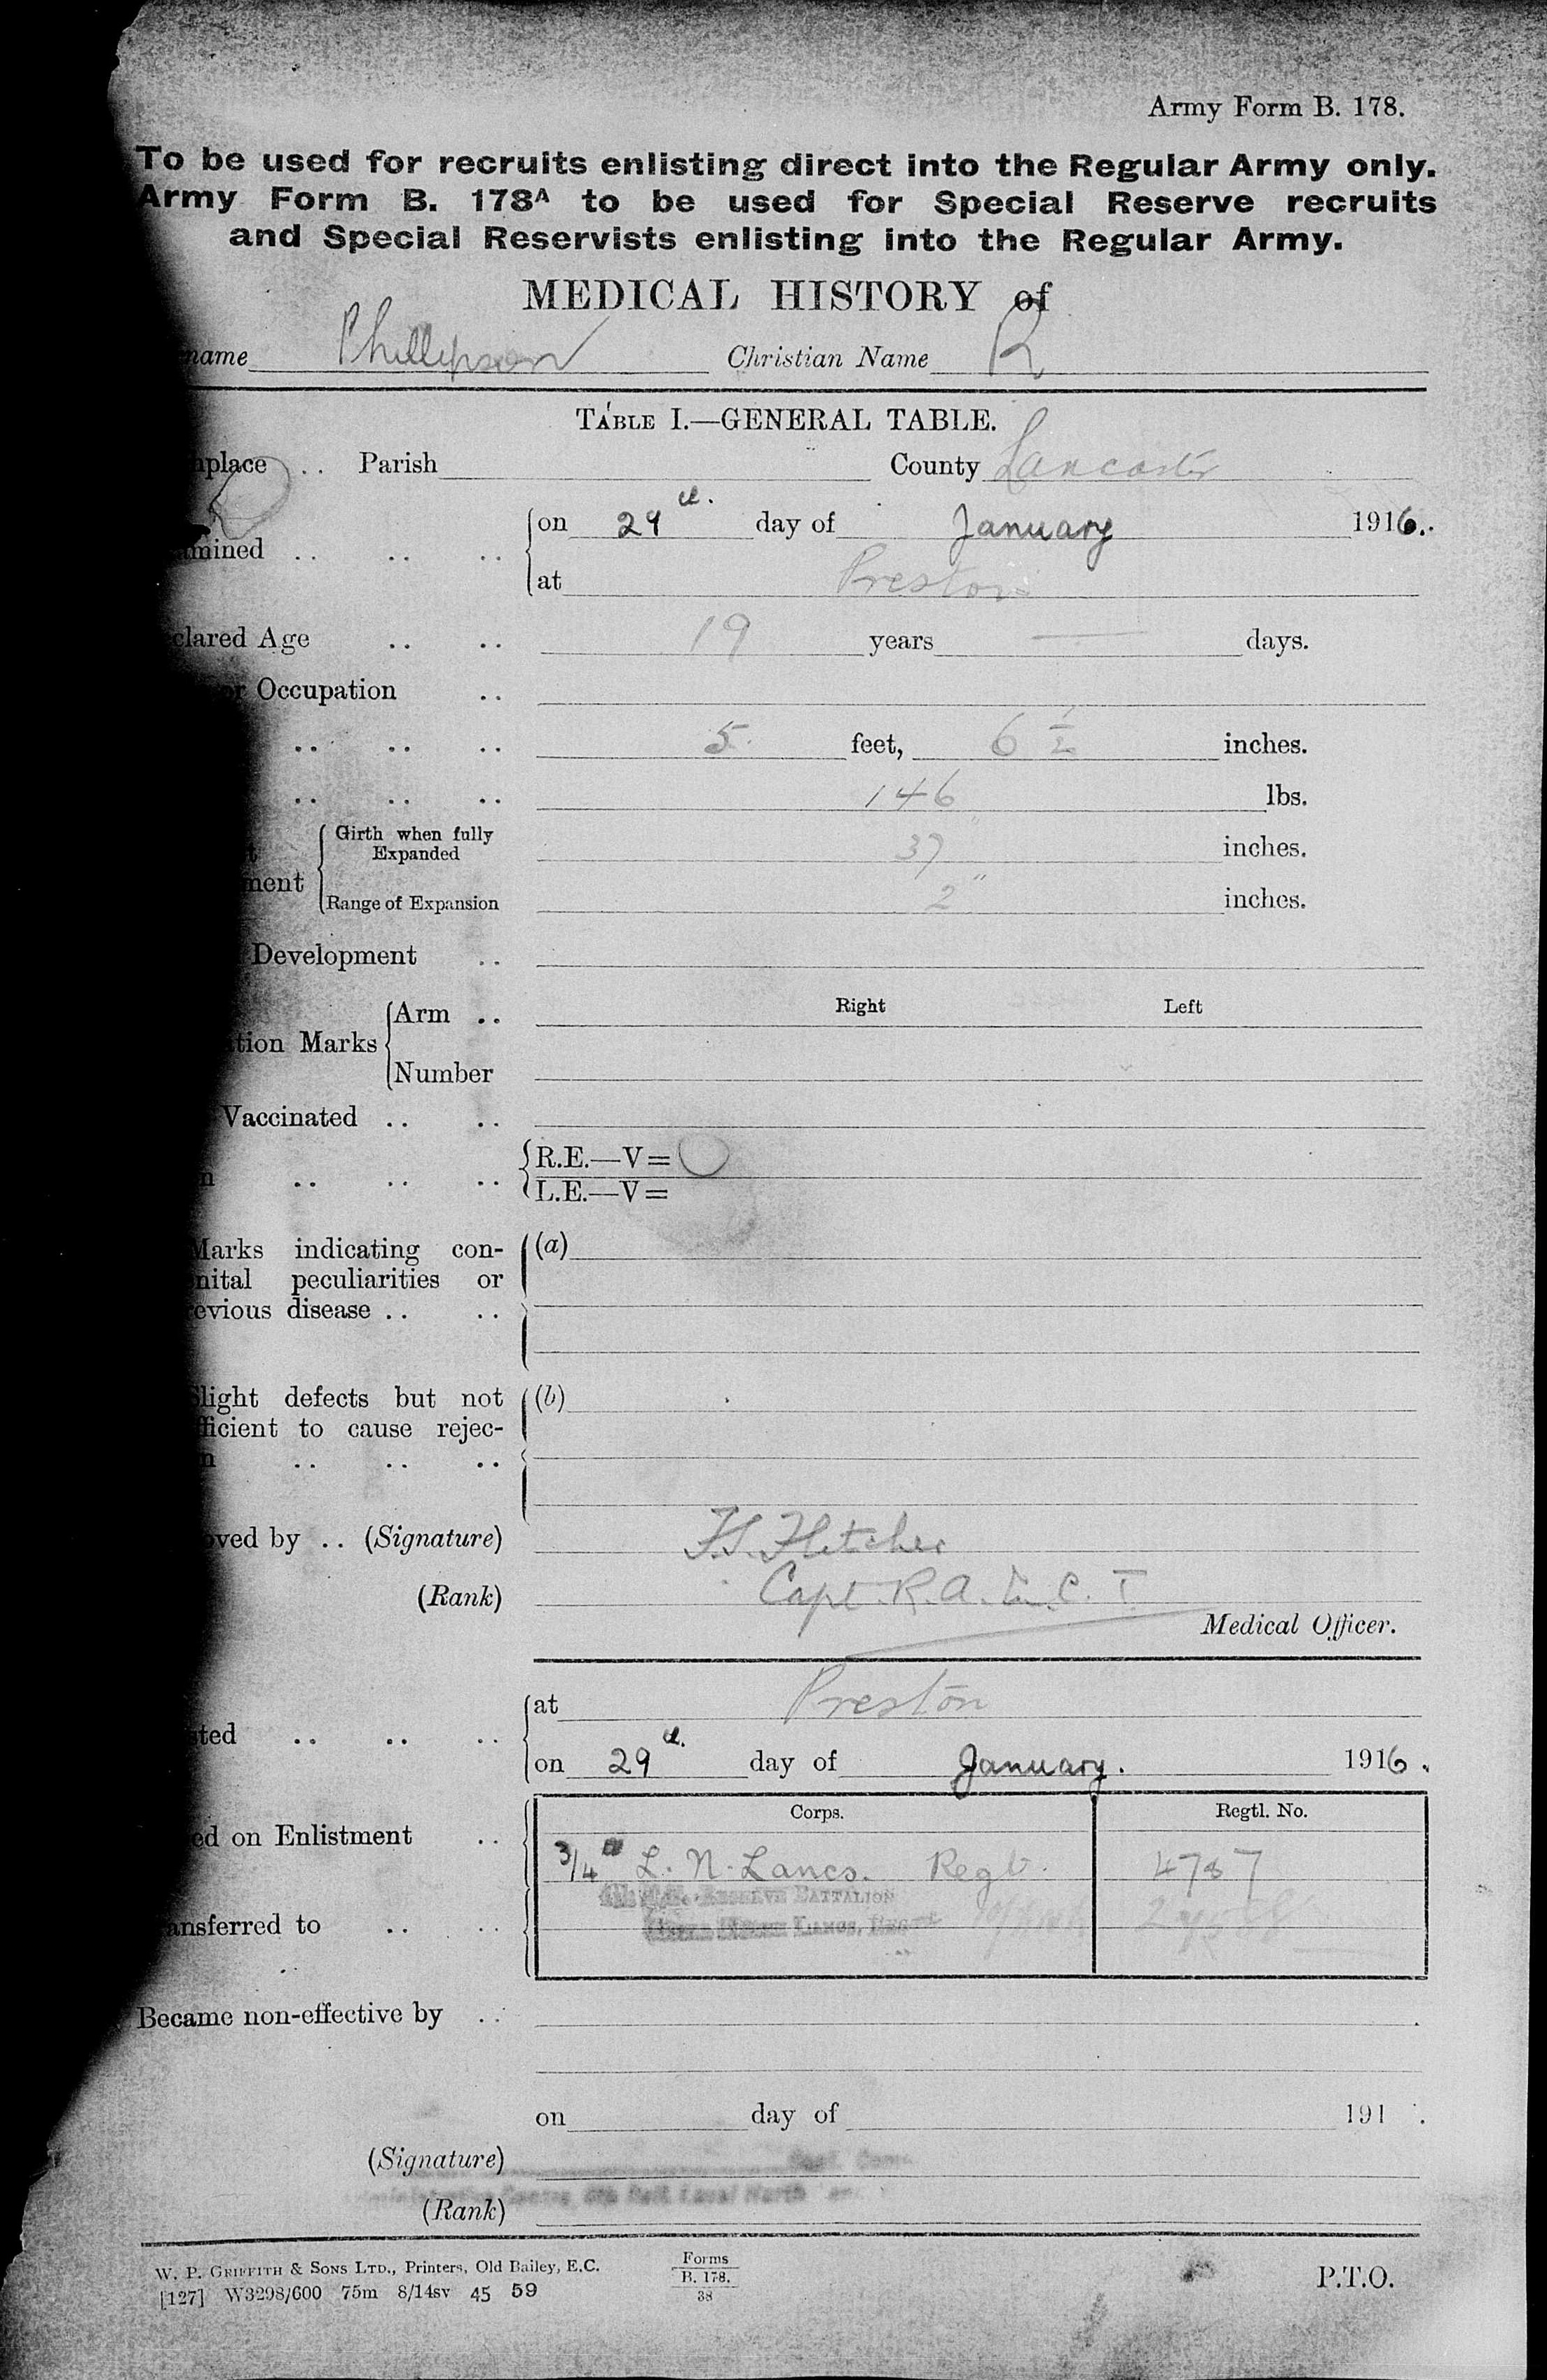 Army Form B. 178.
To be used for recruits enlisting direct into the Regular Army only.
Army Form B. 178A to be used for Special Reserve recruits
and Special Reservists enlisting into the Regular Army.
MEDICAL HISTORY of
name Phillipson Christian Name R
TABLE I.—GENERAL TABLE.
hplace .. Parish County Lancaster
on 29th. day of January 1916.
amined .. .. ..
at Preston
clared Age .. .. 19 years — days.
or Occupation ..
.. .. .. 5 feet, 6 1/2 inches.
.. .. .. 146 lbs.
Girth when fully Expanded 37" inches.
ment
Range of Expansion 2" inches.
Development ..
Right Left
Arm ..
tion Marks
Number
Vaccinated .. ..
R.E.—V=
n .. .. ..
L.E.—V=
Marks indicating con- (a)
nital peculiarities or
evious disease .. ..
Slight defects but not (b)
fficient to cause rejec-
n .. .. ..
oved by .. (Signature) F.S. Fletcher
(Rank) Capt. R.A.M.C. T.
Medical Officer.
at Preston
sted .. .. ..
on 29th. day of January. 1916.
Corps. Regtl. No.
ed on Enlistment .. 3/4th L. N. Lancs. Regt. 4787
RESERVE BATTALION
ansferred to .. .. LANCS. REGT
Became non-effective by ..
on day of 191 .
(Signature)
(Rank)
W. P. GRIFFITH & SONS LTD., Printers, Old Bailey, E.C.
[127] W3298/600 75m 8/14sv 45 59
Forms
B. 178.
38
P.T.O.